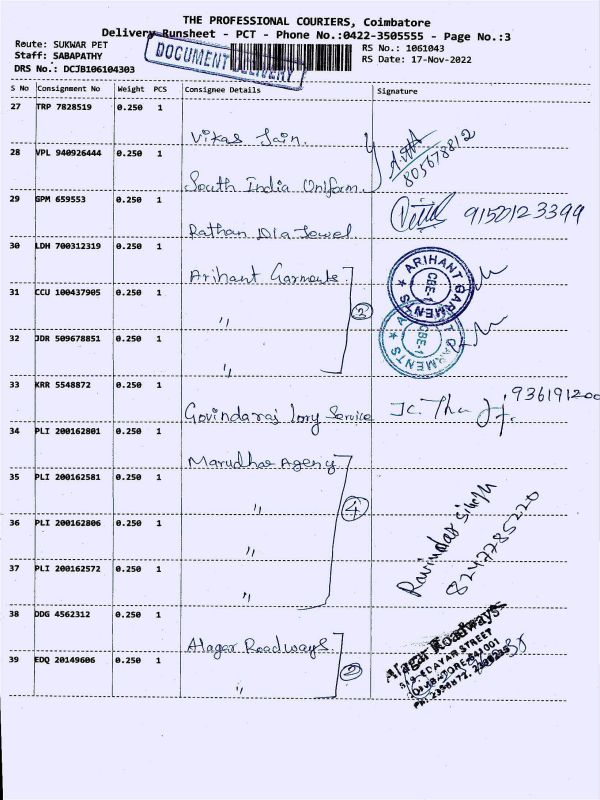 THE PROFESSIONAL COURIERS, Coimbatore
Delivery Runsheet - PCT - Phone No.:0422-3505555 - Page No.:3
Route: SUKWAR PET
Staff: SABAPATHY
DRS No.: DCJB106104303
DOCUMENT DELIVERY
RS No.: 1061043
RS Date: 17-Nov-2022
S No Consignment No Weight PCS Consignee Details Signature
27 TRP 7828519 0.250 1
Vikas Jain.
28 VPL 940926444 0.250 1
South India Uniform
805678812
29 GPM 659553 0.250 1
Rathan Dia Jewel
9150123399
30 LDH 700312319 0.250 1
Arihant Garments
ARIHANT GARMENTS CBE-1
31 CCU 100437905 0.250 1
"
2
32 JDR 509678851 0.250 1
"
ARIHANT GARMENTS CBE-1
33 KRR 5548872 0.250 1
Govindaraj lory Service
936191200
34 PLI 200162801 0.250 1
Marudhar Agency
35 PLI 200162581 0.250 1
"
4
36 PLI 200162806 0.250 1
"
37 PLI 200162572 0.250 1
"
Ravindar Singh
8247785220
38 DDG 4562312 0.250 1
Alagar Roadways
39 EDQ 20149606 0.250 1
"
2
Alagar Roadways
EDAYAR STREET
COIMBATORE-641001